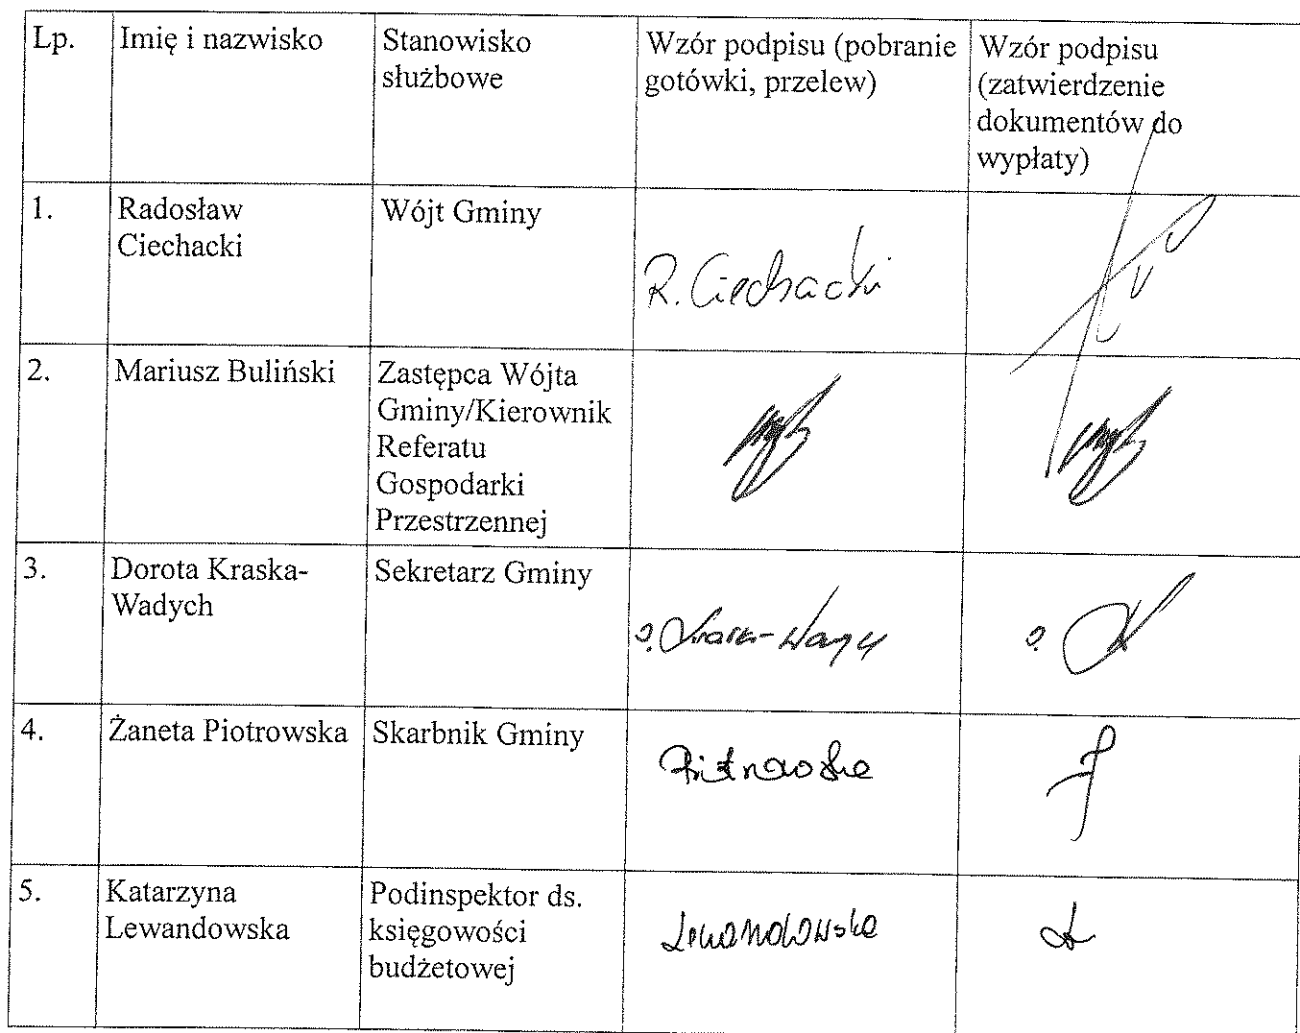 Lp.
Imię i nazwisko
Stanowisko
służbowe
Wzór podpisu (pobranie
gotówki, przelew)
Wzór podpisu
(zatwierdzenie
dokumentów do
wypłaty)
1.
Radosław
Ciechacki
Wójt Gminy
R. Ciechacki
2.
Mariusz Buliński
Zastępca Wójta
Gminy/Kierownik
Referatu
Gospodarki
Przestrzennej
3.
Dorota Kraska-
Wadych
Sekretarz Gminy
4.
Żaneta Piotrowska
Skarbnik Gminy
Piotrowska
5.
Katarzyna
Lewandowska
Podinspektor ds.
księgowości
budżetowej
Lewandowska